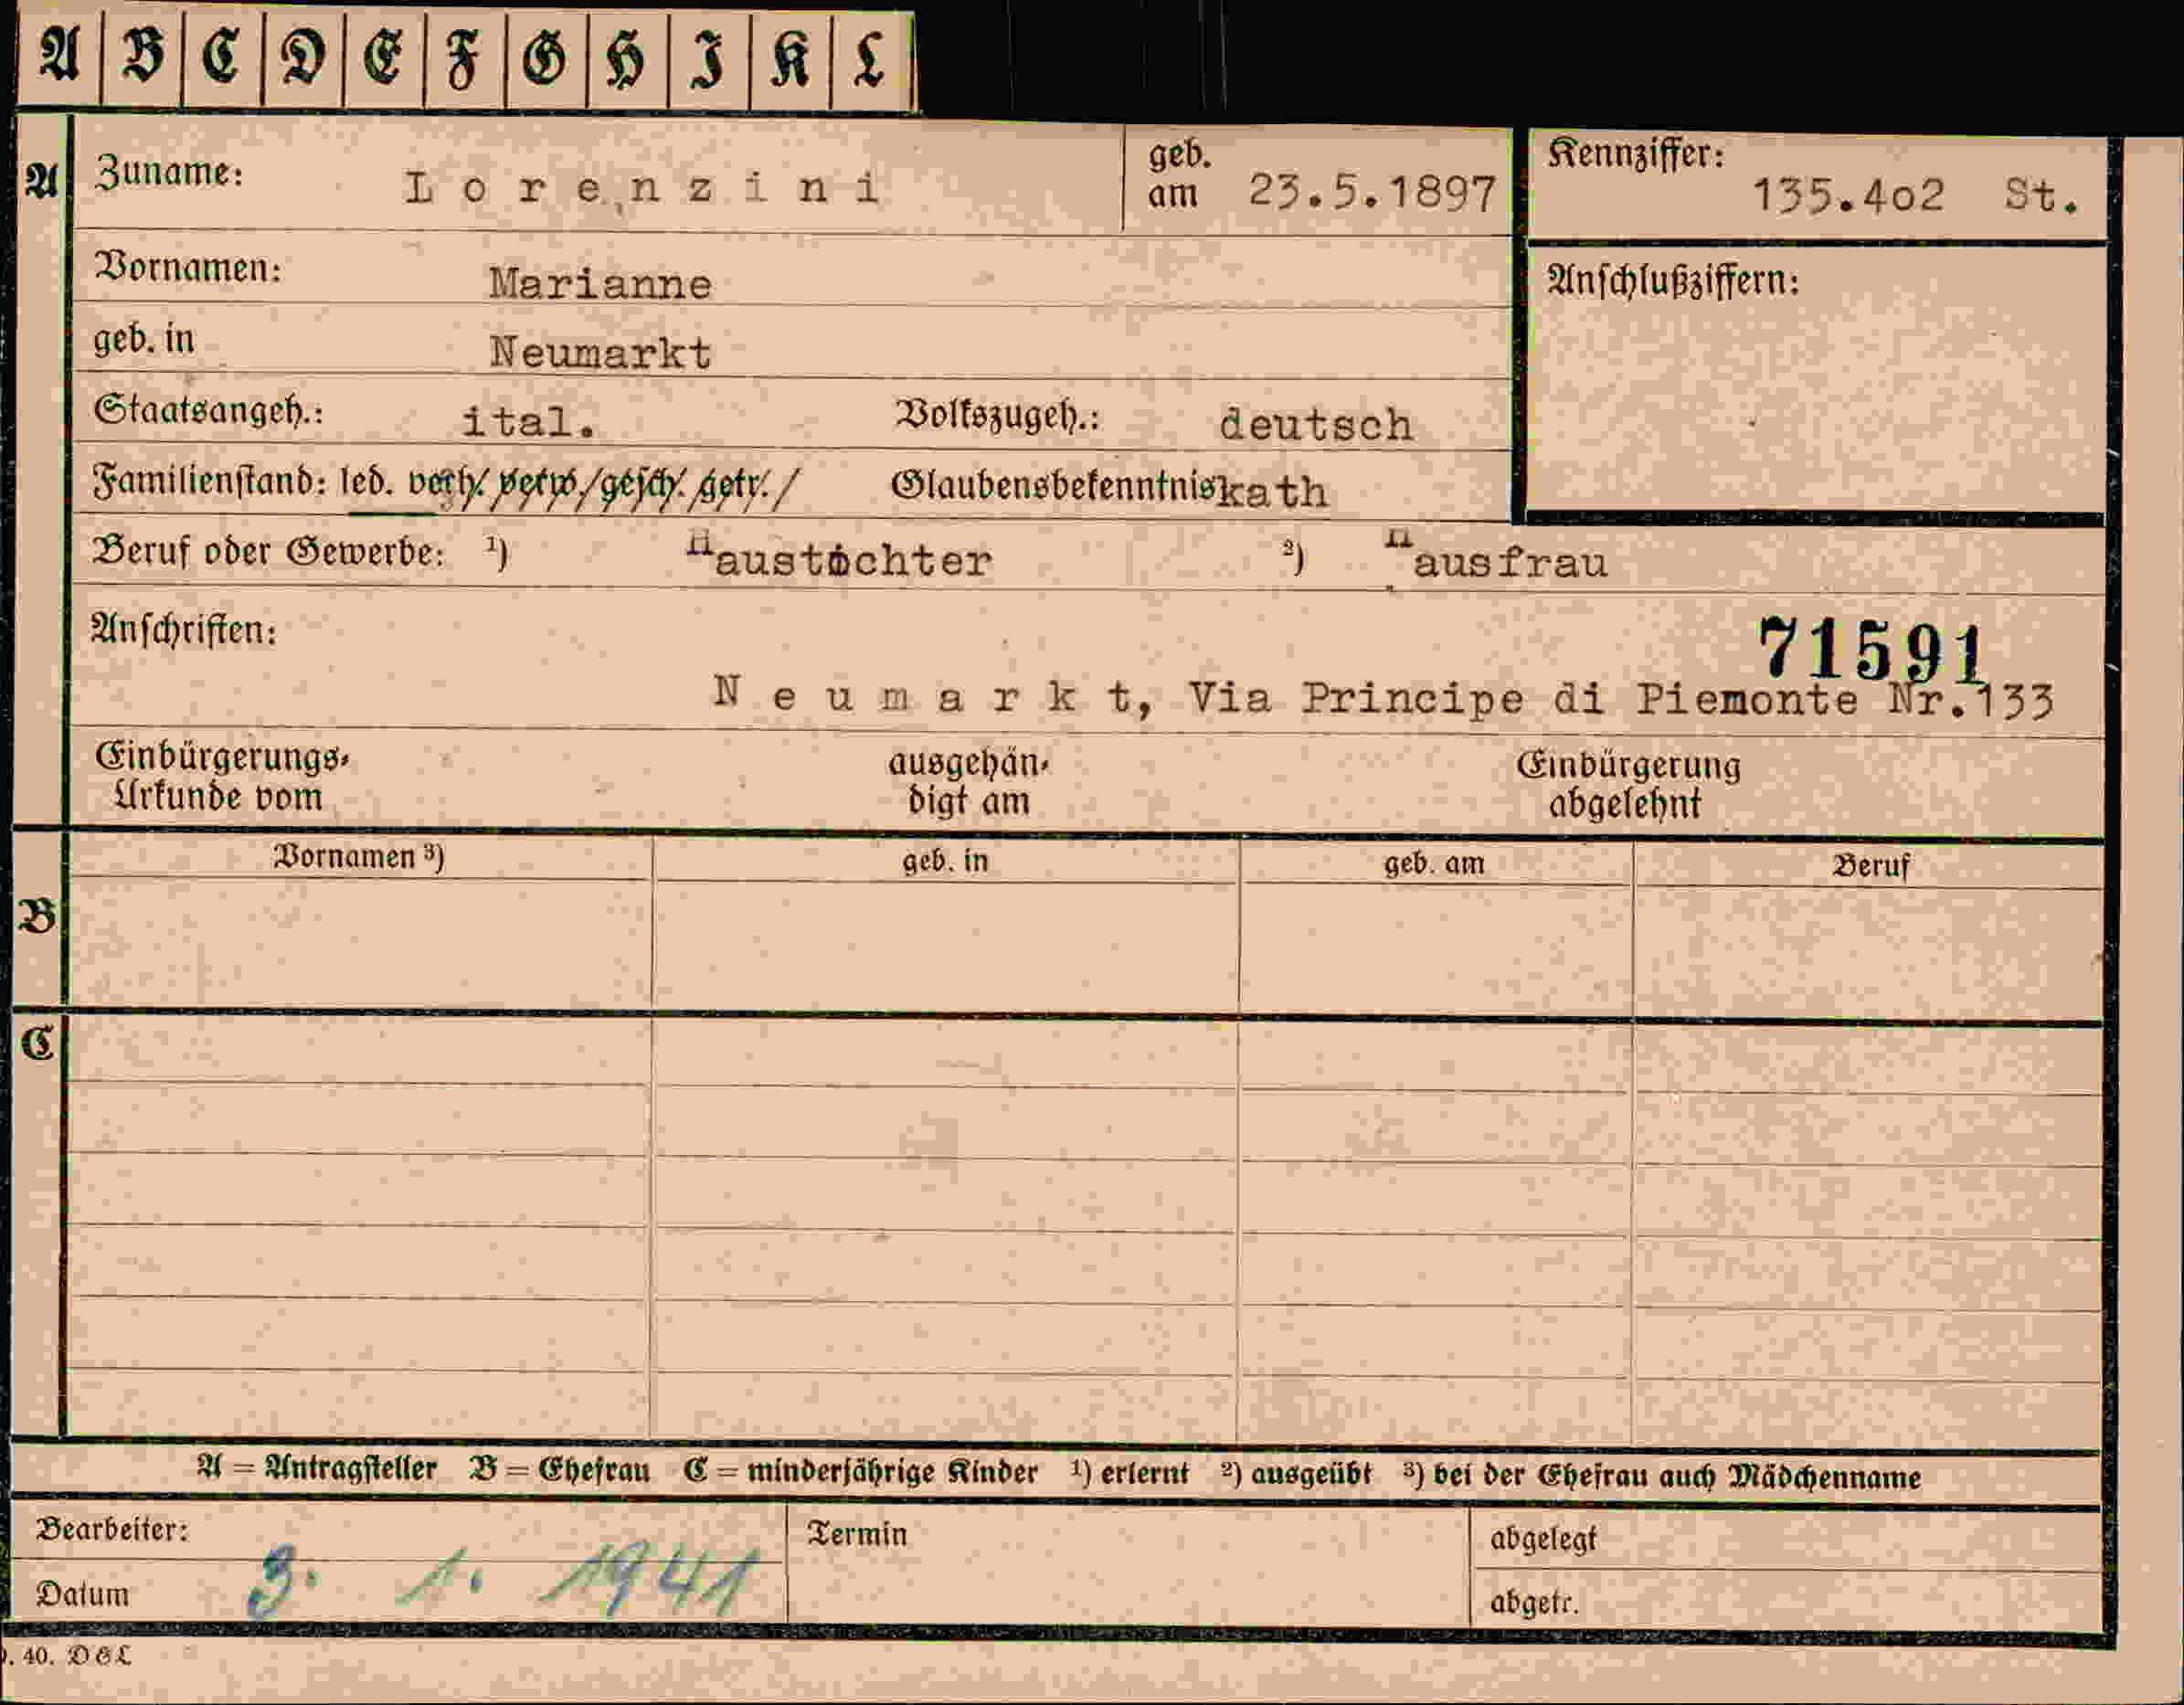 A B C D E F G H I K L
A Zuname: Lorenzini geb. am 23.5.1897 Kennziffer: 135.4o2 St.
Vornamen: Marianne Anschlußziffern:
geb. in Neumarkt
Staatsangeh.: ital. Volkszugeh.: deutsch
Familienstand: led. verh. verw. gesch. getr. Glaubensbekenntnis kath
Beruf oder Gewerbe: ¹) Haustochter ²) Hausfrau
Anschriften: 71591
Neumarkt, Via Principe di Piemonte Nr.133
Einbürgerungs- ausgehän- Einbürgerung
Urkunde vom digt am abgelehnt
Vornamen ³) geb. in geb. am Beruf
B
C
A = Antragsteller B = Ehefrau C = minderjährige Kinder ¹) erlernt ²) ausgeübt ³) bei der Ehefrau auch Mädchenname
Bearbeiter: Termin abgelegt
Datum 3. 1. 1941 abgetr.
. 40. DEL